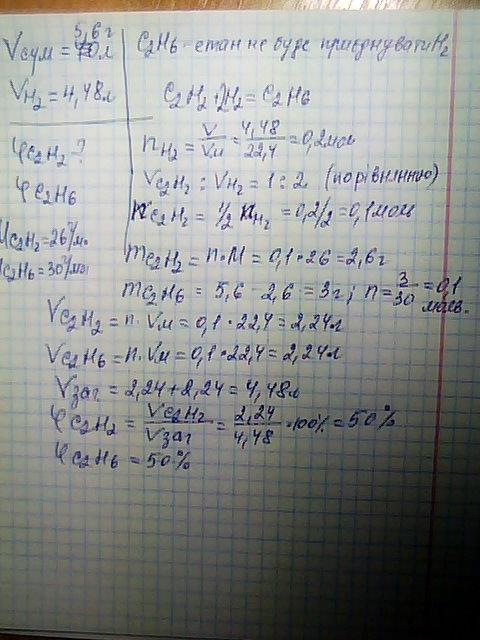 Vсум = 5,6 г
VH₂ = 4,48 л
φC₂H₂ - ?
φC₂H₆
MC₂H₂ = 26 г/мо
MC₂H₆ = 30 г/мол
C₂H₆ - етан не буде приєднувати H₂
C₂H₂ + 2H₂ = C₂H₆
nH₂ = V/Vм = 4,48/22,4 = 0,2 мол
VC₂H₂ : VH₂ = 1 : 2 (порівнянню)
nC₂H₂ = 1/2 nH₂ = 0,2/2 = 0,1 мол
mC₂H₂ = n·M = 0,1·26 = 2,6 г
mC₂H₆ = 5,6 - 2,6 = 3 г; n = 3/30 = 0,1 моль.
VC₂H₂ = n·Vм = 0,1·22,4 = 2,24 л
VC₂H₆ = n·Vм = 0,1·22,4 = 2,24 л
Vзаг = 2,24 + 2,24 = 4,48 л
φC₂H₂ = VC₂H₂/Vзаг = 2,24/4,48 · 100% = 50%
φC₂H₆ = 50%